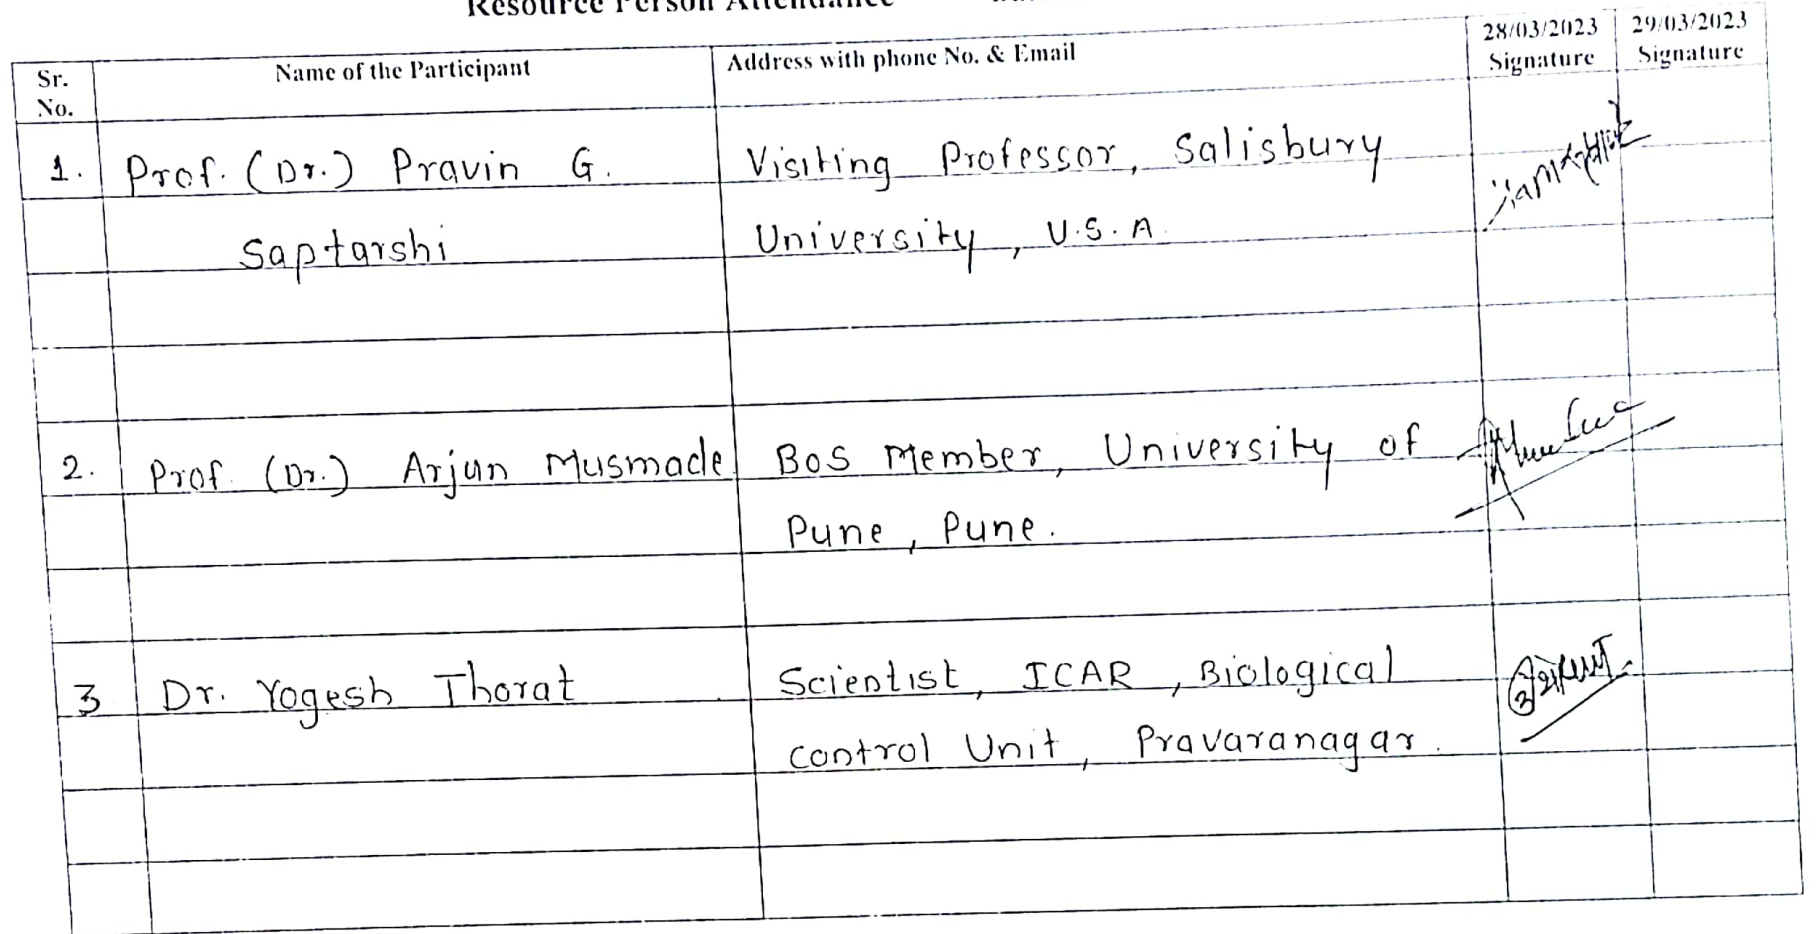 Resource Person Attendance
28/03/2023 29/03/2023
Sr. Name of the Participant Address with phone No. & Email Signature Signature
No.
1. Prof. (Dr.) Pravin G. Visiting Professor, Salisbury
Saptarshi University, U.S.A.
2. Prof. (Dr.) Arjun Musmade BoS Member, University of
Pune, Pune.
3 Dr. Yogesh Thorat Scientist, ICAR, Biological
control Unit, Pravaranagar.